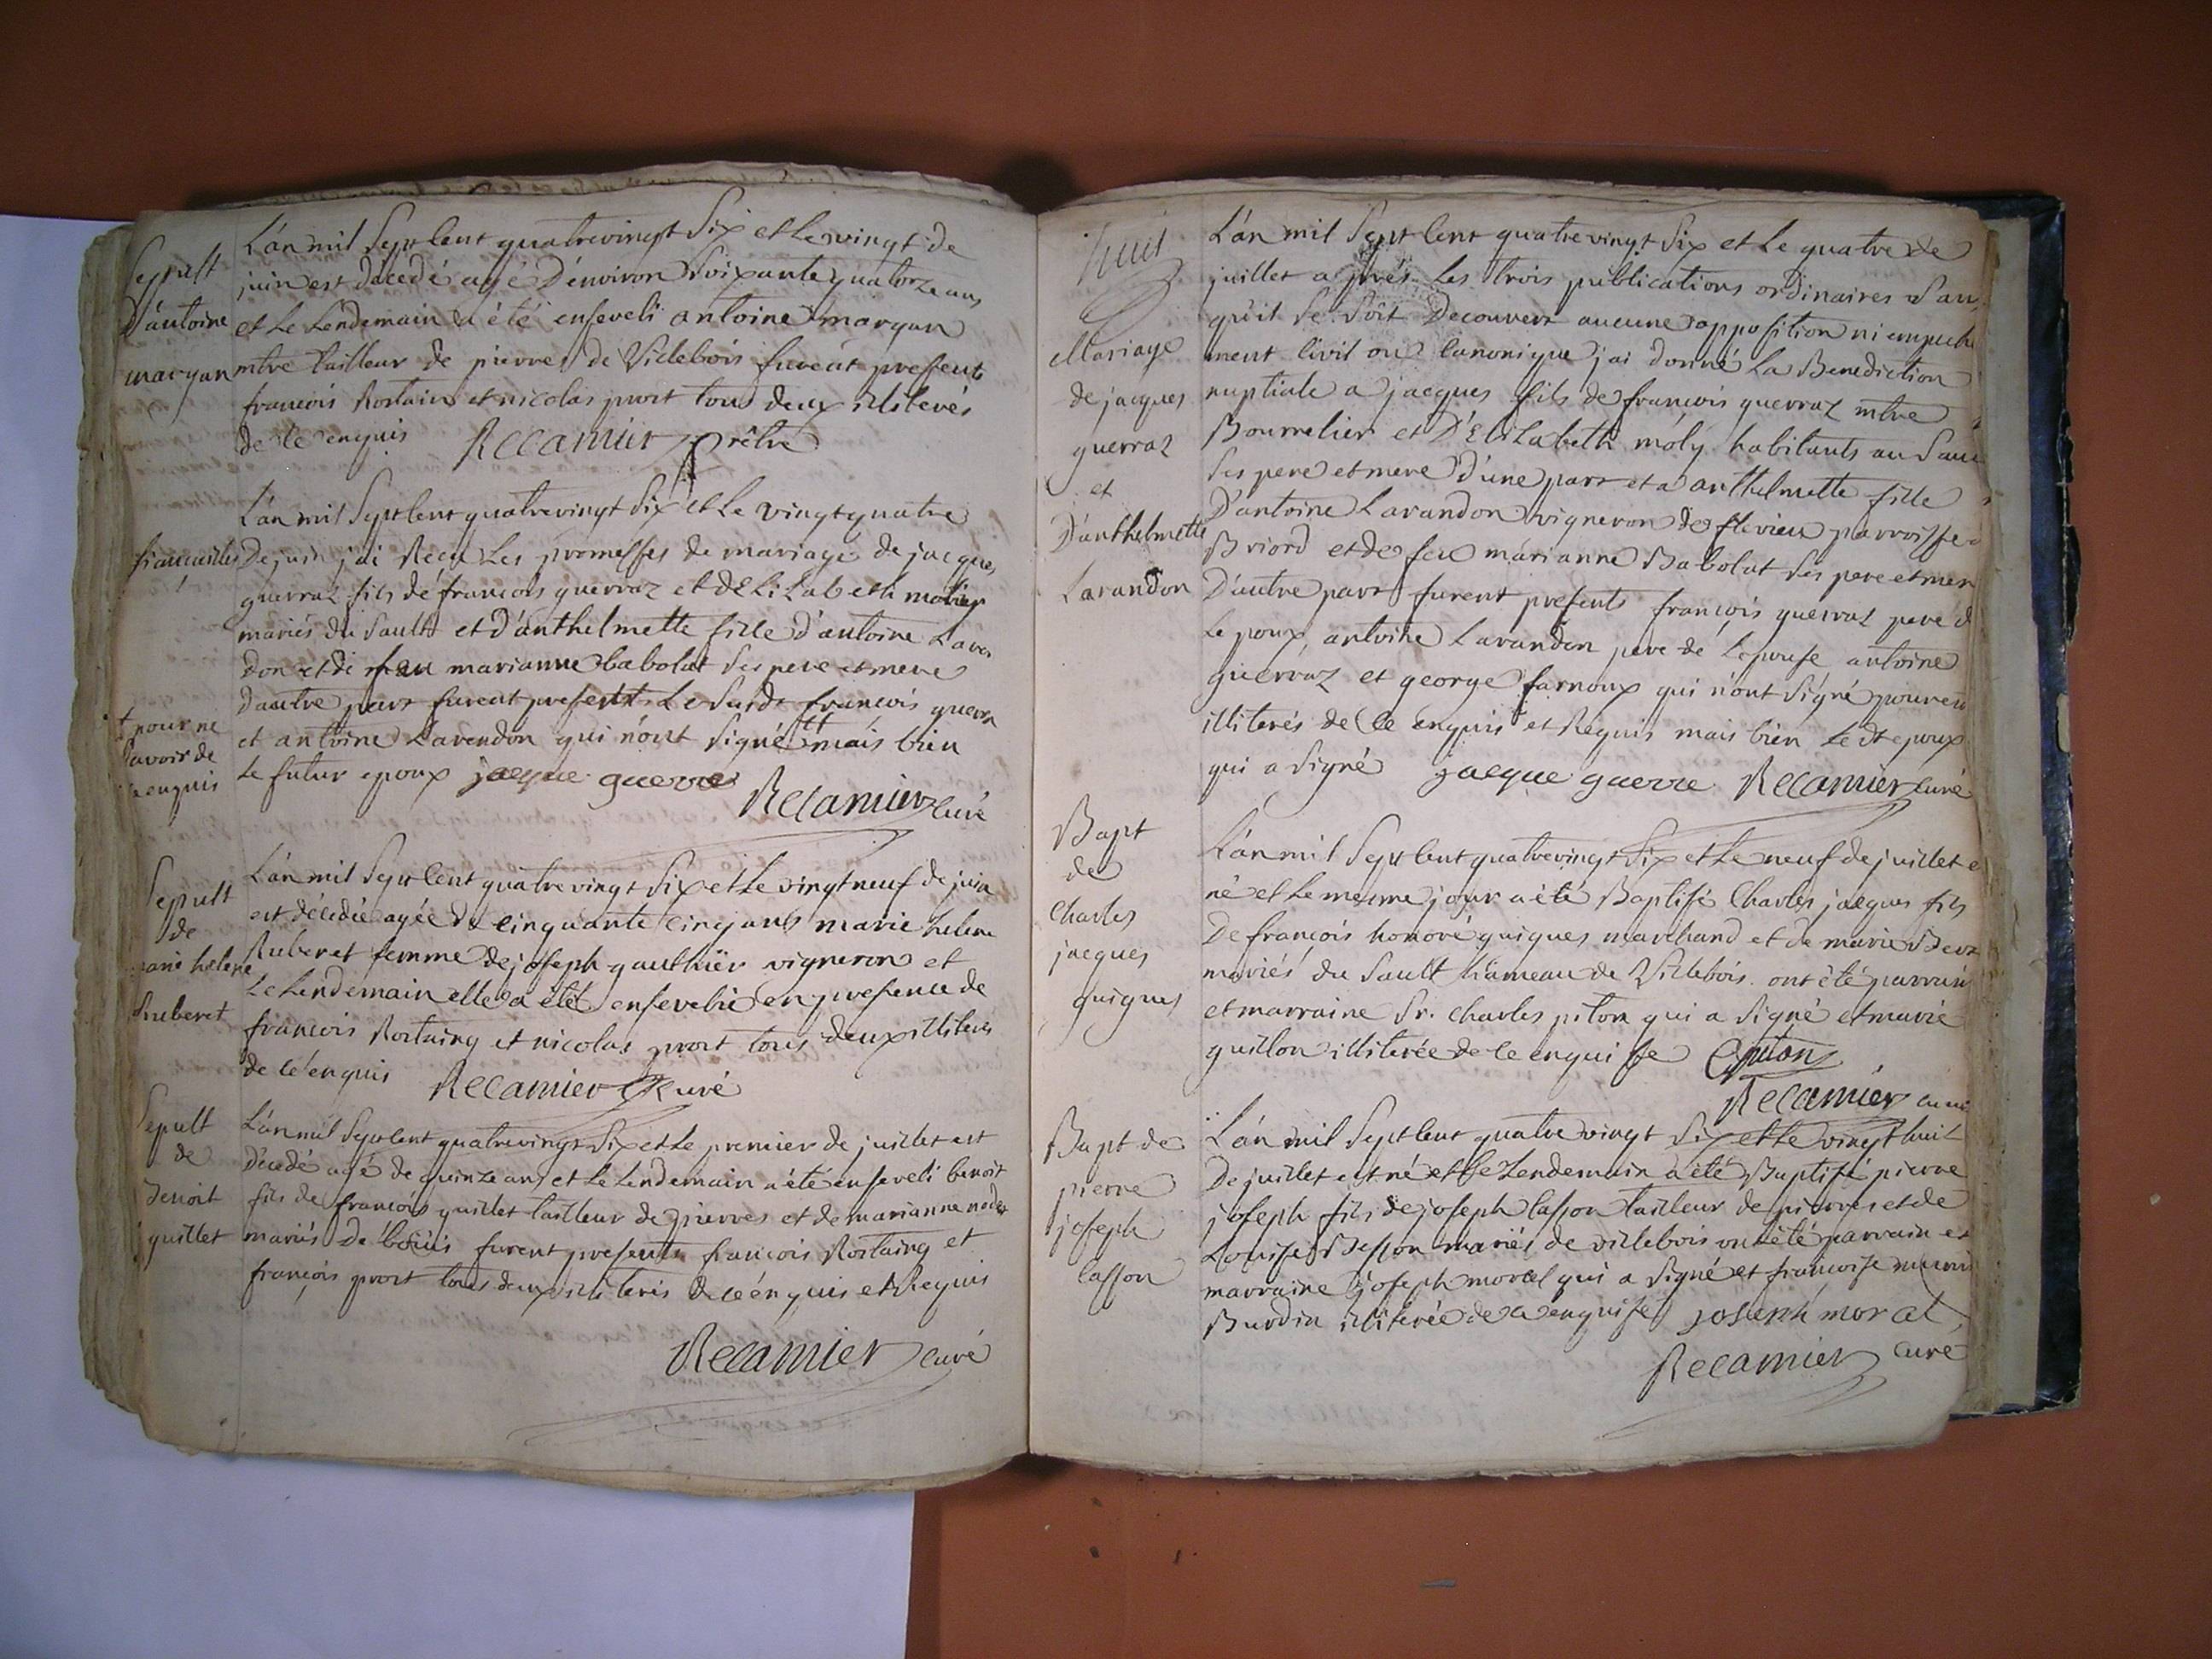 Sepult
D'antoine
margan
L'an mil Sept Cent quatrevingt Six et Le vingt de
juin est décedé agé D'environ Soixante quatorze ans
et Le Lendemain a été enseveli antoine margan
mtre tailleur de pierres de Villebois furent presents
francois Rortain et nicolas prort tous deux illiterés
de ce enquis Recamier prêtre
fiancailles
L'an mil Sept Cent quatrevingt Six et Le vingt quatre
De juin j'ai Recu Les promesses de mariage de jacques
guerraz fils de francois guerraz et d'Elizabeth
mariés du Sault et d'anthelmette fille d'antoine Lavan
don et de feu marianne babolat Ses pere et mere
d'autre part furent presents Le Susdt francois guerra
et antoine Lavendon qui n'ont Signé mais bien
Le futur epoux jacque guerre
Recamier Curé
pour ne
Savoir de
ce enquis
Sepult
de
marie helene
huberet
L'an mil Sept Cent quatrevingt Six et Le vingt neuf de juin
est décedée agée de cinquante cinq ans marie helene
huberet femme de joseph gauthier vigneron et
Le Lendemain elle a été ensevelie en presence de
francois Rortaing et nicolas prort tous deux illiterés
de ce enquis Recamier Curé
Sepult
de
Benoit
quillet
L'an mil Sept Cent quatrevingt Six et Le premier de juillet est
décedé agé de quinze ans et Le Lendemain a été enseveli benoit
fils de francois quillet tailleur de pierres et de marianne
mariés De bouis furent presents francois Rortaing et
francois prort tous deux illiterés de ce enquis et Requis
Recamier Curé
huit
Mariage
de jacques
guerraz
et
D'anthelmette
Lavandon
L'an mil Sept Cent quatre vingt Six et Le quatre de
juillet aprés Les trois publications ordinaires San
qu'il Se Soit Decouvert aucune opposition ni empeche
ment Civil ou Canonique j'ai donné La Benediction
nuptiale a jacques fils de francois guerraz mtre
Bourrelier et D'Elizabeth moly habitants au Sault
Ses pere et mere d'une part et a anthelmette fille
D'antoine Lavandon vigneron de flevieu parroisse
Briord et de feu marianne Babolat Ses pere et mere
D'autre part furent presents francois guerraz pere d
L'epoux, antoine Lavandon pere de L'epouse antoine
guerraz et george farnoux qui n'ont Signé pour etre
illiterés de Ce enquis et Requis mais bien Le dt epoux
qui a Signé jacque guerre Recamier Curé
Bapt
de
Charles
jacques
guigues
L'an mil Sept Cent quatrevingt Six et Le neuf de juillet e
né et Le meme jour a été Baptisé Charles jacques fils
De francois honoré guigues marchand et de marie
mariés du Sault hameau de Villebois. ont été parrain
et marraine Sr. Charles piton qui a Signé et marie
guillon illiterée de Ce enquise Cpiton
Recamier Curé
Bapt de
pierre
joseph
Casson
L'an mil Sept Cent quatre vingt Six et Le vingt huit
De juillet est né et Le Lendemain a été Baptisé pierre
joseph fils de joseph Casson tailleur de pierres et de
Louise Besson mariés de villebois ont été parrain et
marraine joseph morel qui a Signé et francoise
Burdin illiterée de ce enquise joseph morel
Recamier Curé